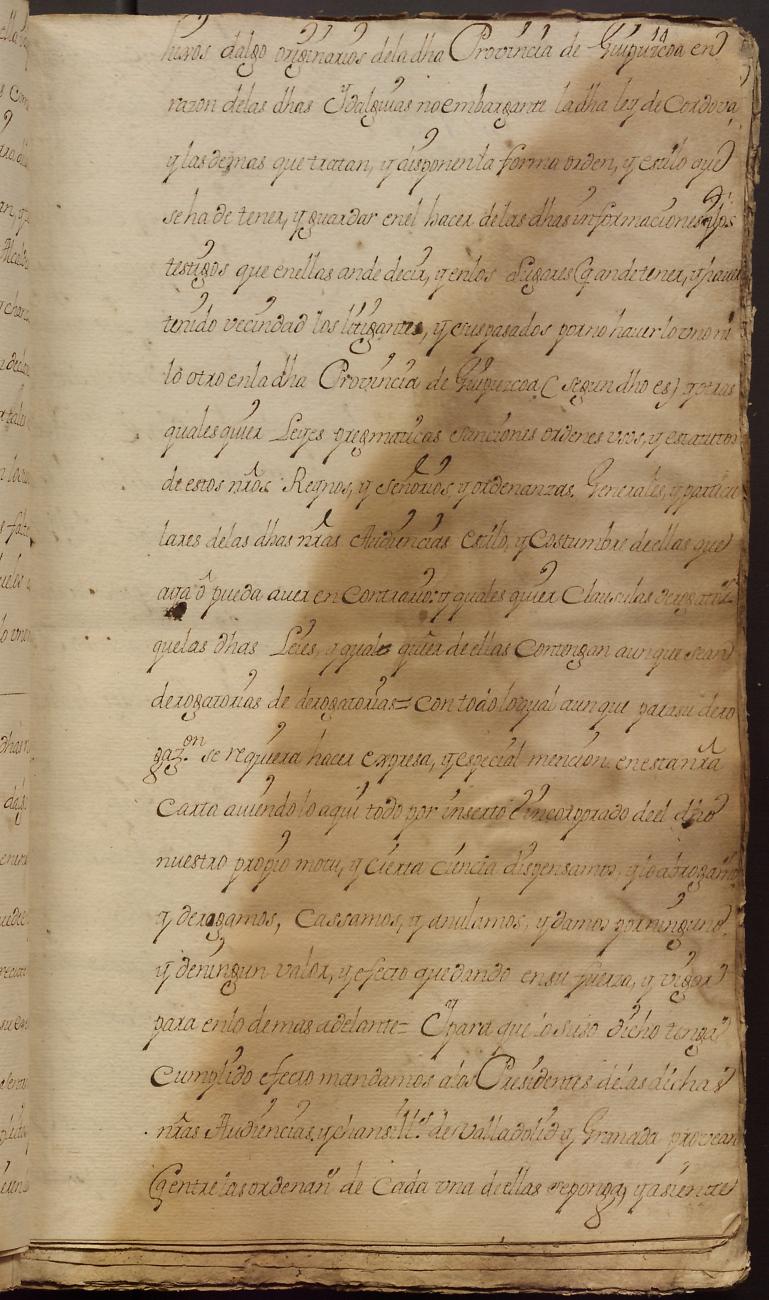 hixos dalgo originarios dela dha Provincia de Guipuzcoa en
razon delas dhas Ydalguias no embargante la dha ley de Cordova
y las demas que tratan, y disponen la forma orden, y estilo que
se ha de tener, y guardar en el hacer delas dhas informaciones y los
testigos que enellas ande decir, y en los Lugares q an de tener, y haver
tenido vecindad los litigantes, y sus pasados por no haver lo uno ni
lo otro en la dha Provincia de Guipuzcoa (segun dho es) y otras
quales quier Leyes pregmaticas sanciones ordenes usos, y estatutos
de estos nrōs Reynos, y señorios y ordenanzas Generales, y particu
lares delas dhas nrās Audiencias estilo, y Costumbre de ellas que
aya ō pueda aver en Contrario: y quales quier Clausulas derogatorias
que las dhas Leies, y quales quier de ellas Contengan aunque sean
derogatorias de derogatorias= con todo lo qual aunque para su dero
gaz.on se requiera hacer expresa, y especial mencion en esta nrā
Carta aviendolo aqui todo por inserto è incorporado de el dho
nuestro propio motu, y cierta ciencia dispensamos, y lo abrogamos
y derogamos, Cassamos, y anulamos, y damos por ninguno,
y de ningun valor, y efecto quedando en su fuerza, y vigor
para en lo demas adelante= Y para que lo suso dicho tenga
Cumplido efecto mandamos a los Presidentes de las dichas
nrās Audiencias y chansill.s de Valladolid y Granada provean
q entre las ordenan.s de Cada una de ellas se ponga, y asiente